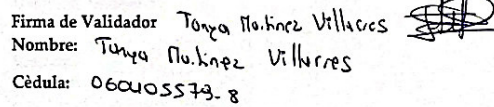 Firma de Validador Tonya Martinez Villacres
Nombre: Tonya Martinez Villacres
Cèdula: 060405573-8